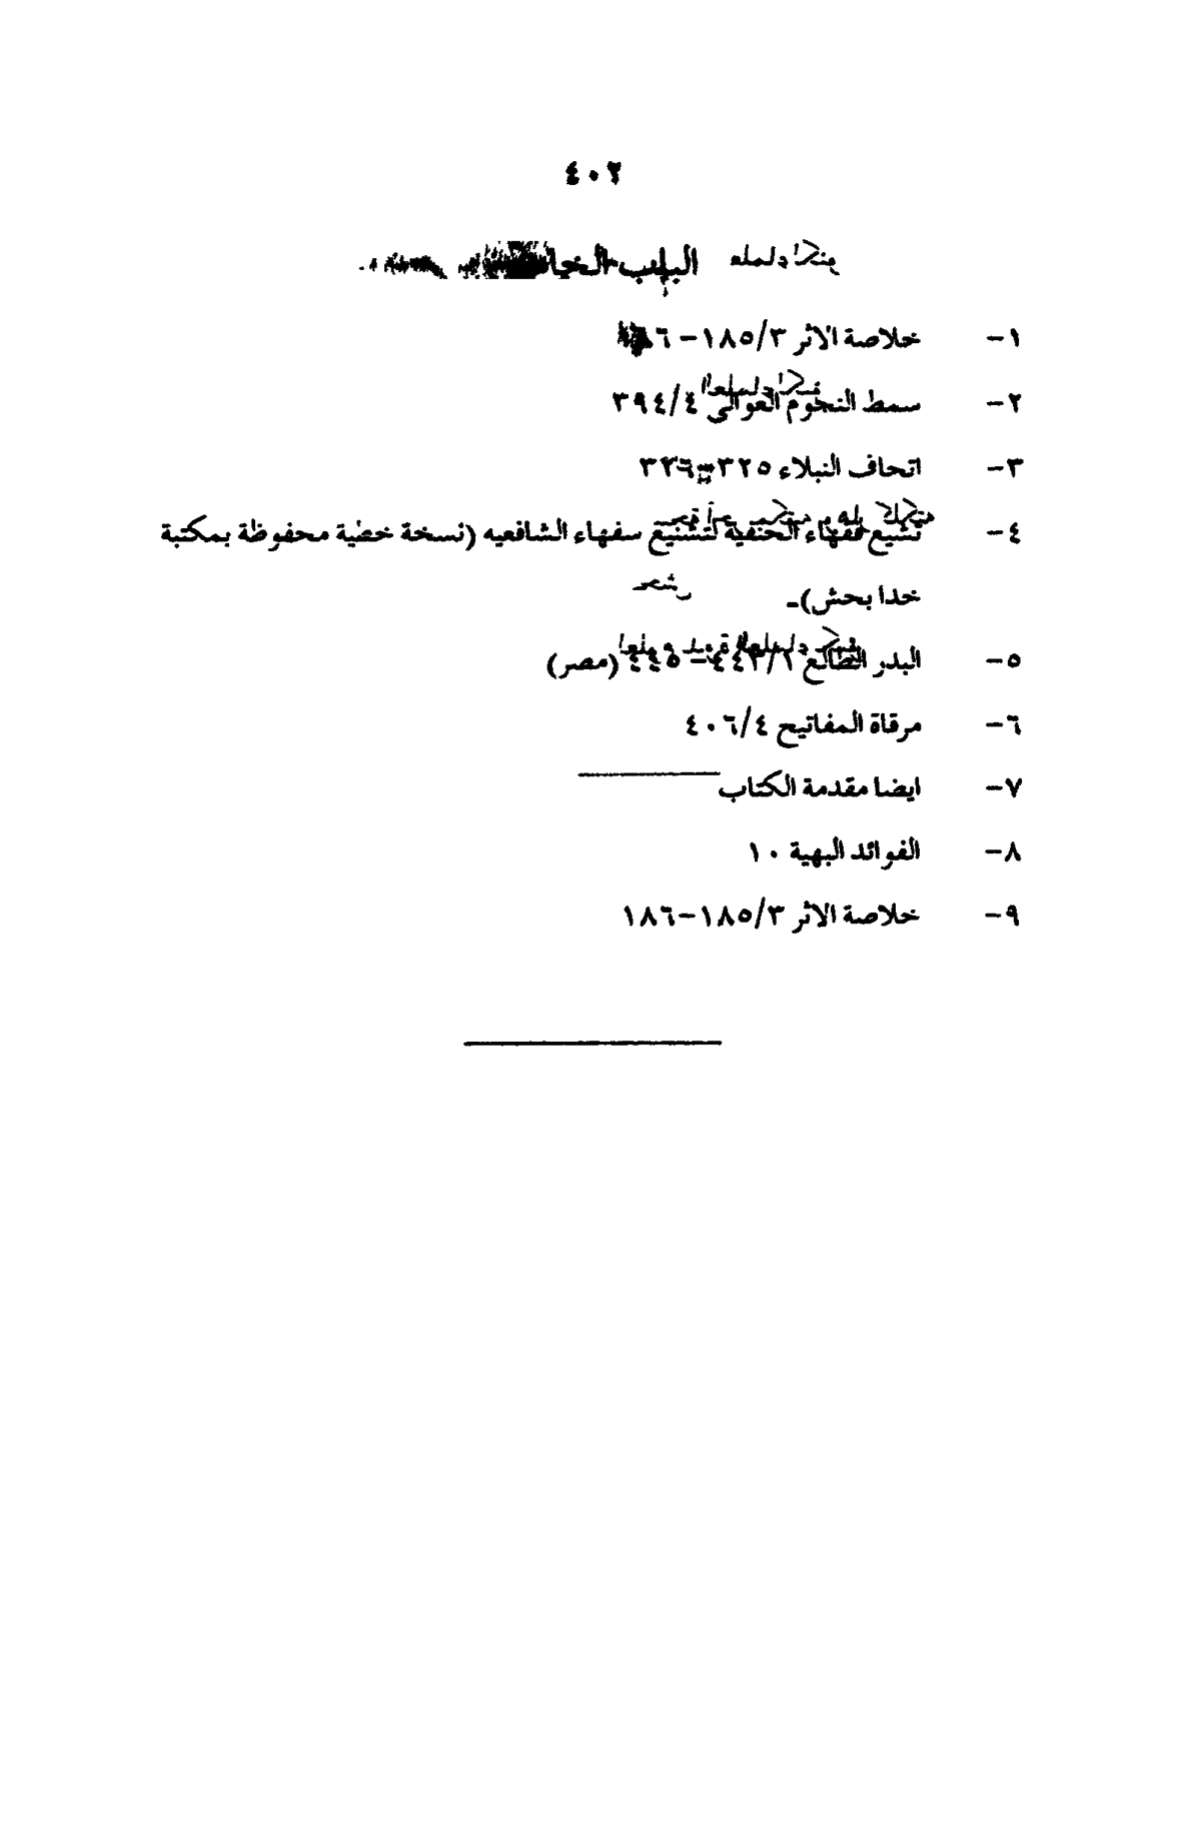 ٤٠٢
الباب
١- خلاصة الاثر ٣/١٨٥-
٢- سمط النجوم العوالى ٤/٣٩٤
٣- اتحاف النبلاء ٣٢٥-٣٢٦
٤- تشيع فقهاء الحنفية لتشنيع سفهاء الشافعيه (نسخة خطية محفوظة بمكتبة
خدا بحش)-
٥- البدر الطالع ١/٤٤٣-٤٤٥ (مصر)
٦- مرقاة المفاتيح ٤/٤٠٦
٧- ايضا مقدمة الكتاب
٨- الفوائد البهية ١٠
٩- خلاصة الاثر ٣/١٨٥-١٨٦